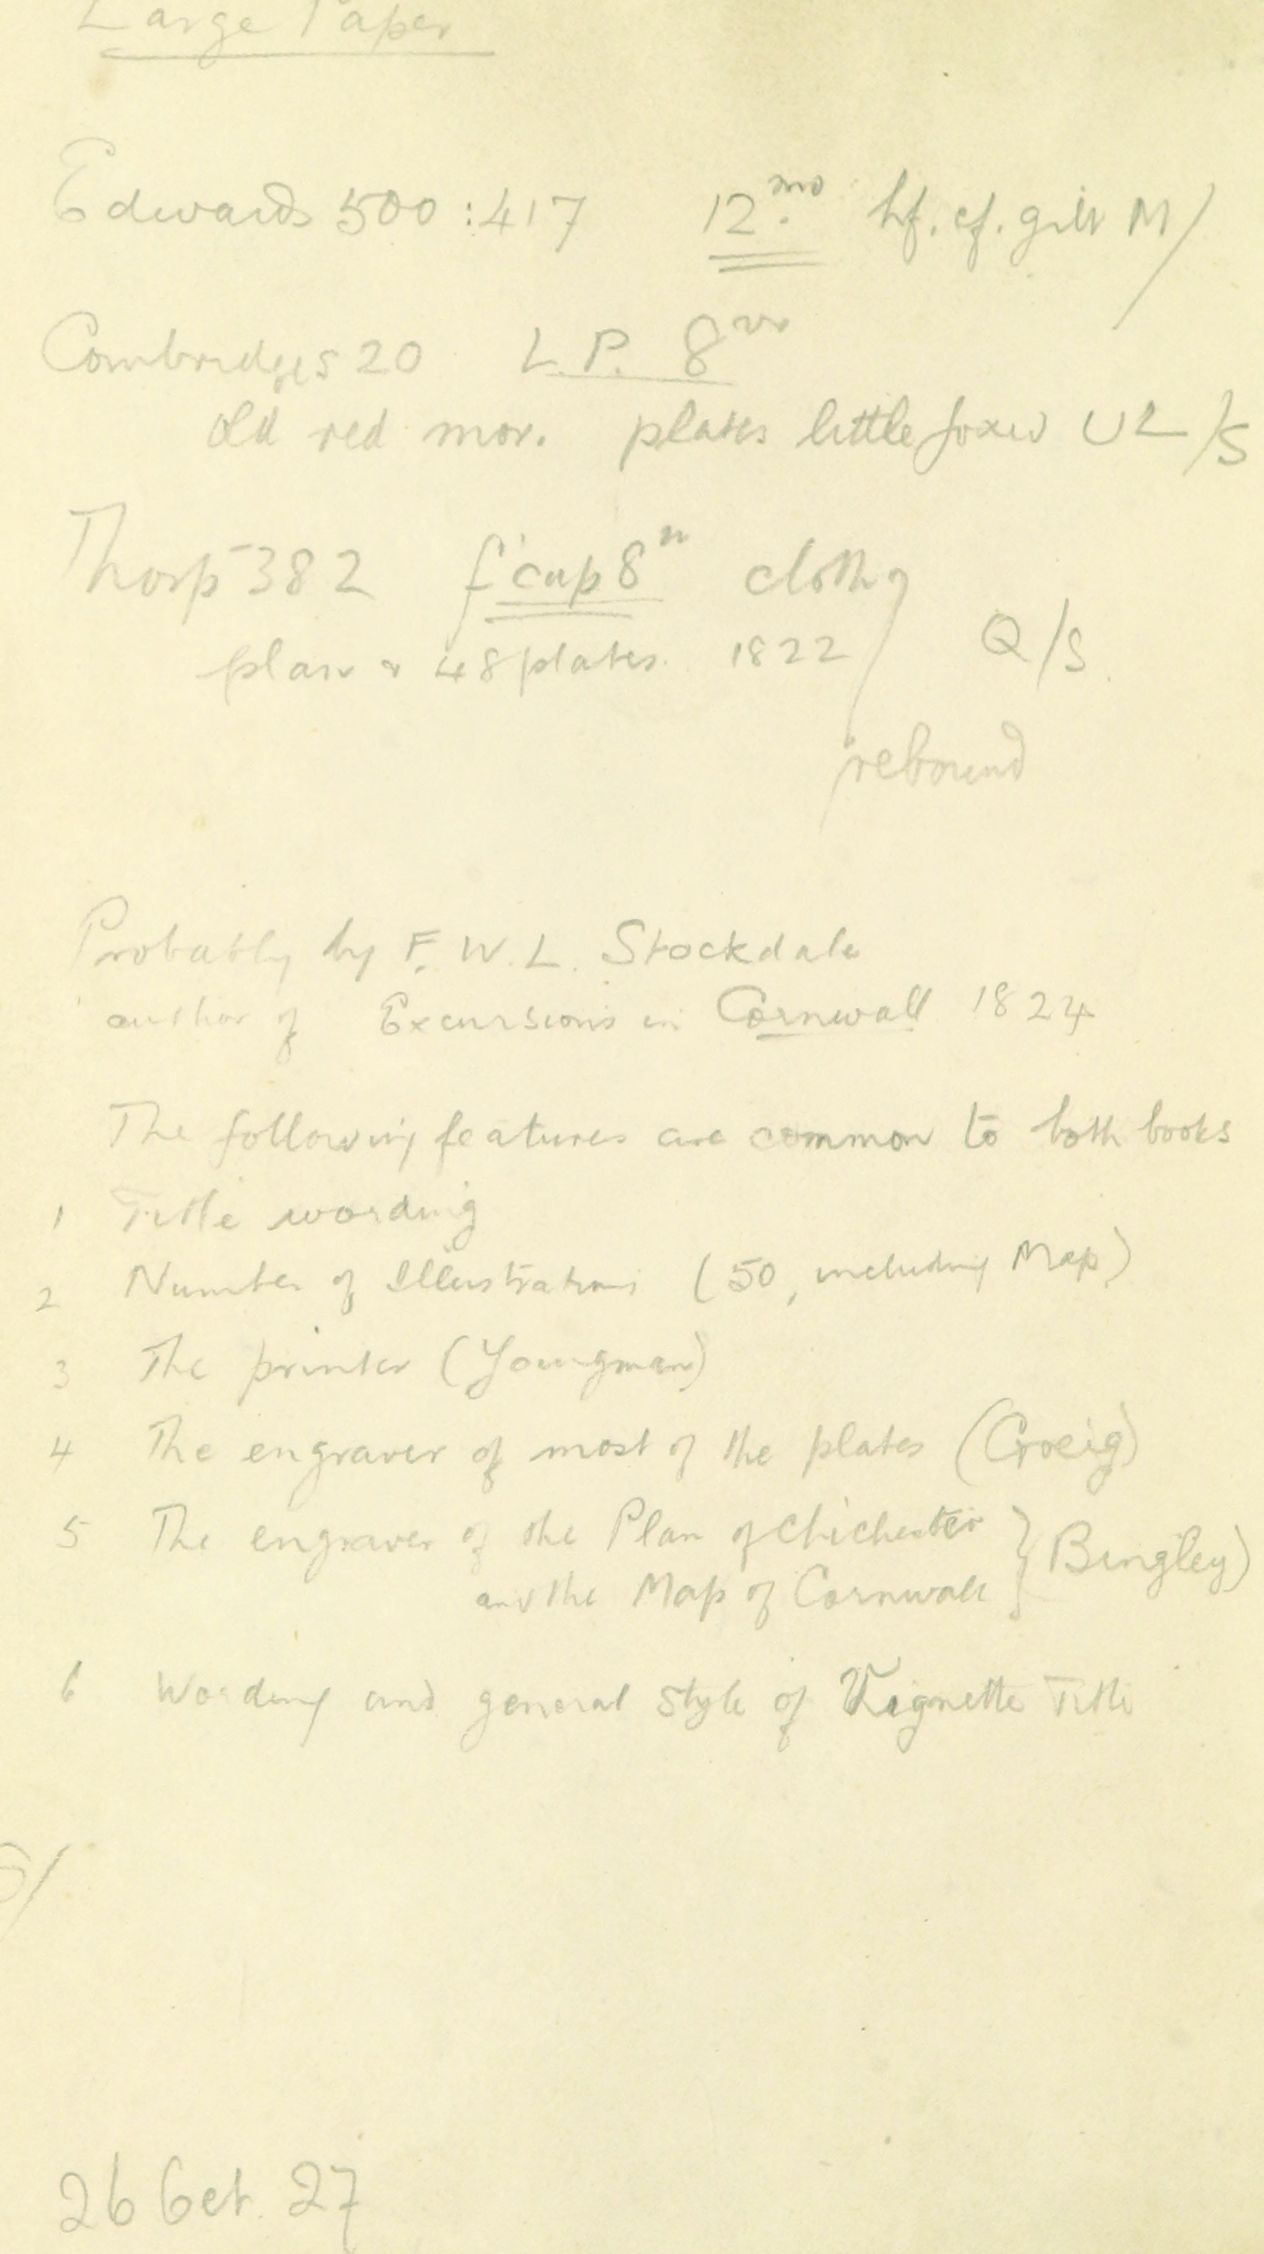 Large Paper
Edwards 500:417 12.mo hf. cf. gilt M/
Combridges 20 L.P. 8vo
old red mor. plates little foxed UL/S
Thorp 382 f'cap 8vo cloth,
plan & 48 plates. 1822 / Q/S.
rebound
Probably by F. W. L. Stockdale
author of Excursions in Cornwall 1824
The following features are common to both books
1 Title wording
2 Number of Illustrations (50, including Map)
3 The printer (Youngman)
4 The engraver of most of the plates (Greig)
5 The engraver of the Plan of Chichester
and the Map of Cornwall } Bingley)
6 Wording and general style of Vignette Title
26 Oct. 27